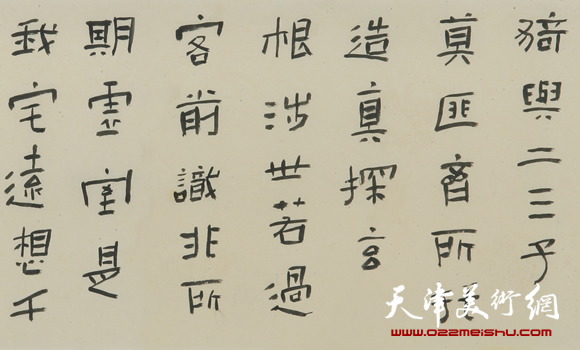 猗與二三子
莫匪齊所托
造真探玄
根涉世若過
客前識非所
期虛室是
我宅遠想千
天津美術網
www.022meishu.com